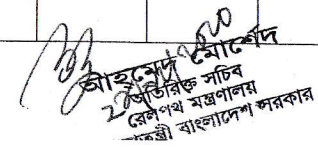 আহমেদ মোর্শেদ
অতিরিক্ত সচিব
রেলপথ মন্ত্রণালয়
বাংলাদেশ সরকার